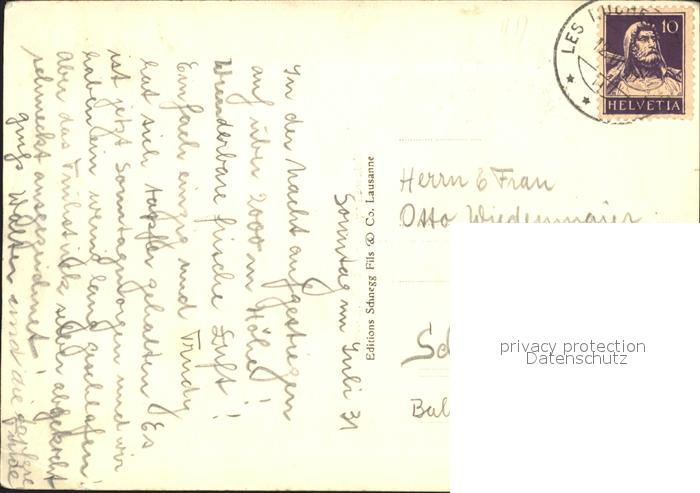 Sonntag im Juli 31
In der Nacht aufgestiegen
auf über 2000 m Höhe!
Wunderbare frische Luft!
Einfach einzig und Trudy
hat sich tapfer gehalten Es
ist jetzt Sonntagmorgen und wir
haben ein wenig lang geschlafen!
Aber das Frühstück selber abgekocht
schmeckt ausgezeichnet!
gruss Walter und die
Editions Schnegg Fils & Co. Lausanne
LES
10
HELVETIA
Herrn & Frau
Otto Wiedenmaier
privacy protection
Datenschutz